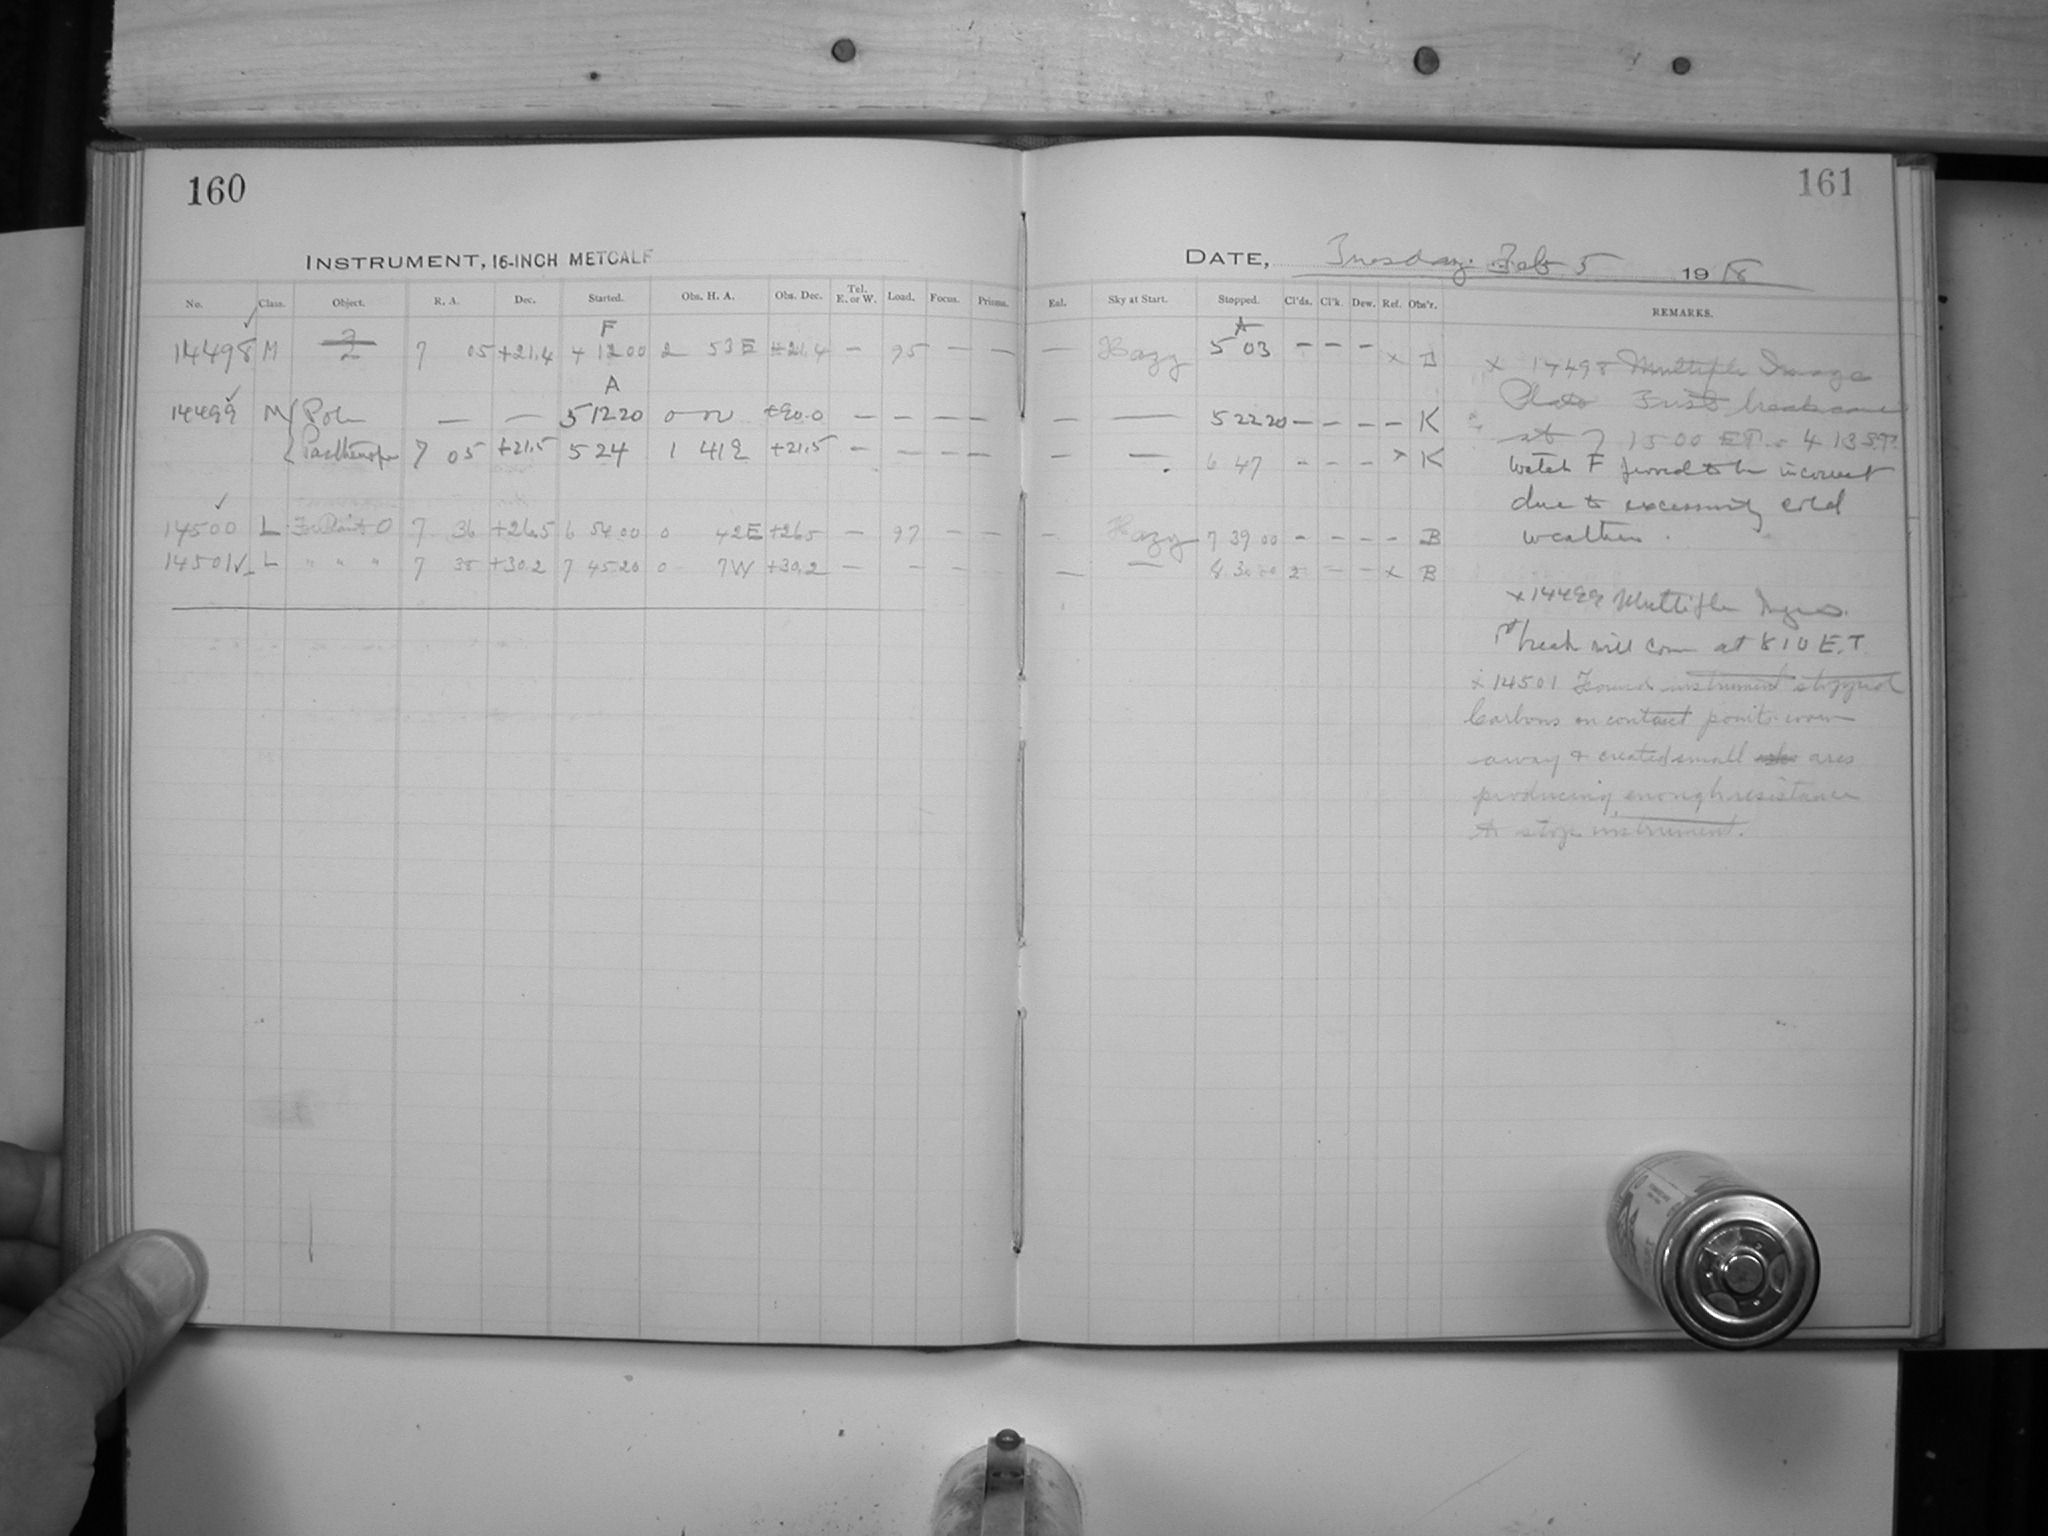 160
INSTRUMENT, 16-INCH METCALF
No. Class. Object. R. A. Dec. Started. Obs. H. A. Obs. Dec. Tel. E. or W. Load. Focus. Prisms.
F
14498 M 7 05 +21.4 4 12 00 2 53 E +21.4 — 95 — —
A
14499 M Pole — — 5 12 20 +90.0 — — — —
Parthenope 7 05 +21.5 5 24 1 41 E +21.5 — — — —
14500 L 7 36 +26.5 6 54 00 0 42 E +26.5 — 97
14501 L " " " 7 38 +30.2 7 45 20 0 7 W +30.2 — — — —
161
DATE, Tuesday. Feb 5 1918
Eal. Sky at Start. Stopped. Cl'ds. Cl'k. Dew. Ref. Obs'r. REMARKS.
A
— Hazy 5 03 — — — x B
— — 5 22 20 — — — — K
— — 6 47 — — — x K
— Hazy 7 39 00 — — — — B
— — 8 30 2 — — x B
x 14498 Multiple Image
Plate First break came
at 7 15 00 E.T. 4 13 S.T.
Watch F proved to be incorrect
due to excessively cold
weather.
x 14499 Multiple Image.
1st break will come at 8 10 E.T.
x 14501 Found instrument stopped
Carbons on contact points worn
away & created small arcs
producing enough resistance
to stop instrument.